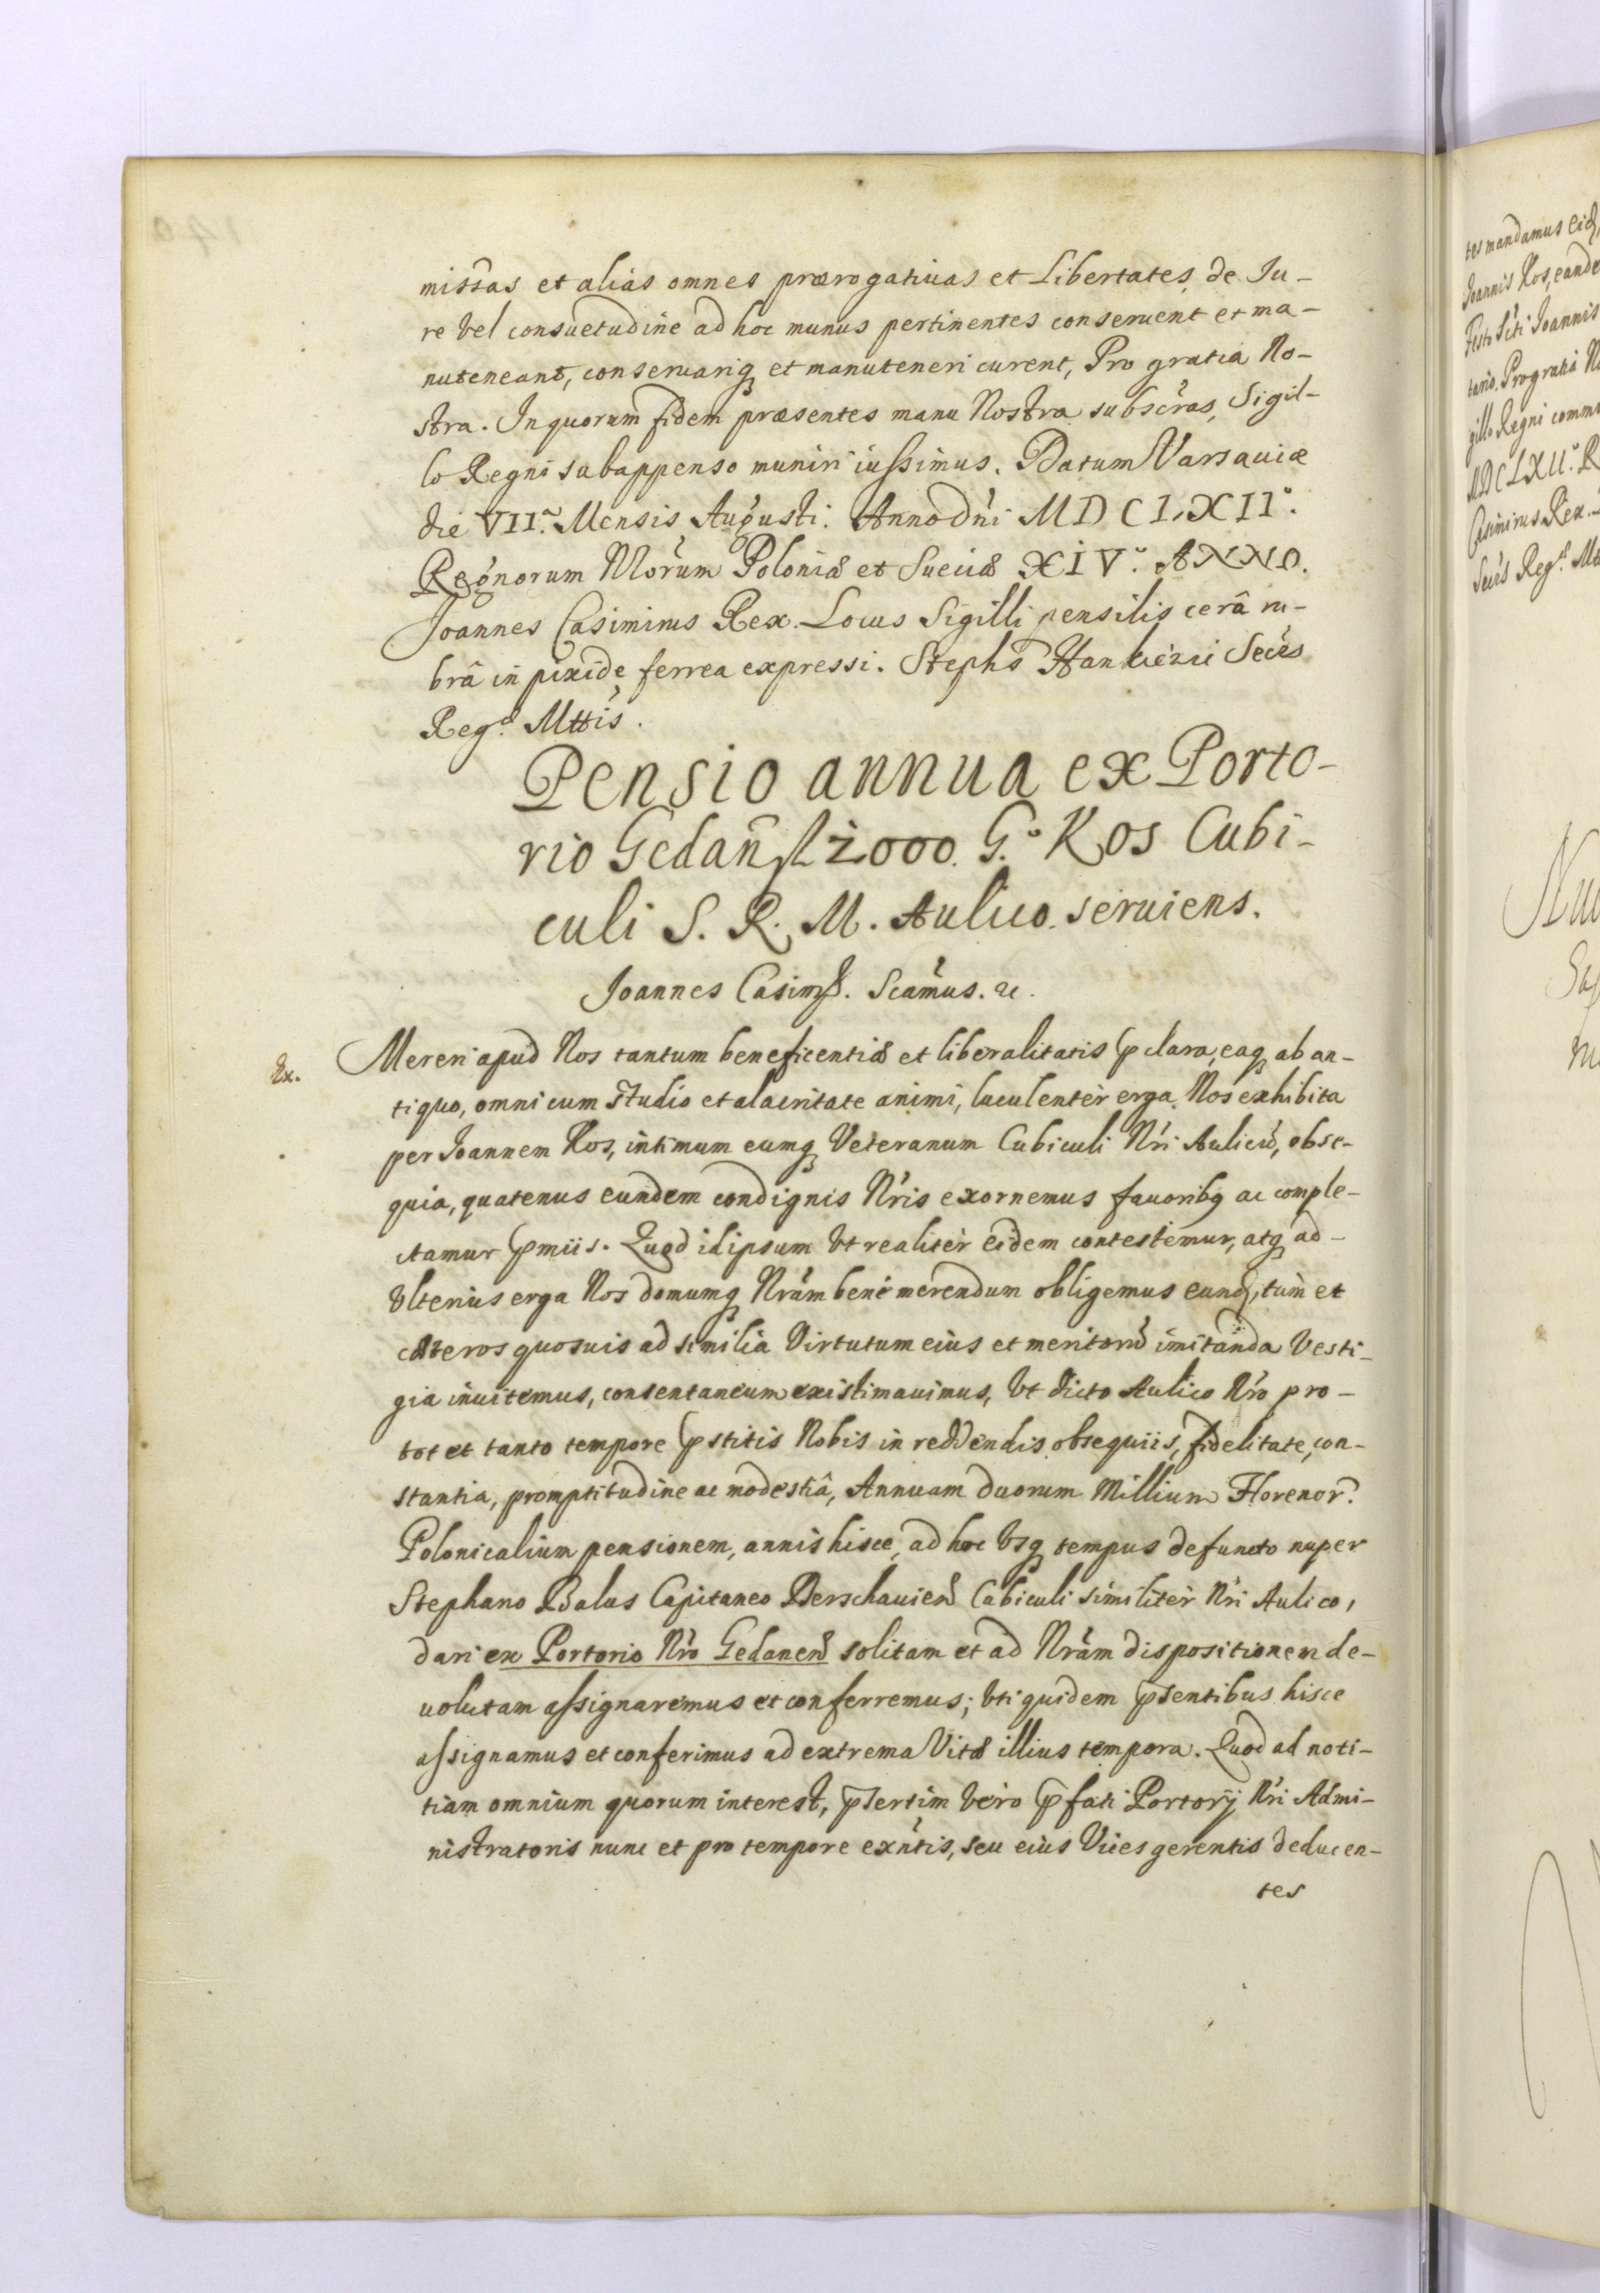 missas et alias omnes prærogatiuas et Libertates, de Iu-
re vel consuetudine ad hoc munus pertinentes conseruent et ma-
nuteneant, conseruariq; et manuteneri curent, Pro gratia No-
stra. In quorum fidem præsentes manu Nostra subscras, Sigil-
lo Regni subappenso muniri iussimus. Datum Varsauiæ
die VII.a Mensis Augusti. Anno Dni MDCLXII°.
Regnorum Nrorum Poloniæ et Sueciæ XIV°. ANNO.
Joannes Casimirus Rex. Locus Sigilli pensilis cerâ ru-
brâ in pixide ferrea expressi. Stephs Hankiewicz Secrs
Reg. Mttis.
Pensio annua ex Porto-
rio Gedan fl 2000. G.° Kos Cubi-
culi S. R. M. Aulico seruiens.
Joannes Casim. Scamus. &c.
Ex.
Mereri apud Nos tantum beneficentiæ et liberalitatis pclara, eaq; ab an-
tiquo, omni cum studio et alacritate animi, luculentèr erga Nos exhibita
per Joannem Kos, intimum eumq; Veteranum Cubiculi Nri Aulicu, obse-
quia, quatenus eundem condignis Nris exornemus fauoribq ac comple-
ctamur pmiis. Quod idipsum vt realitèr eidem contestemur, atq; ad-
vlterius erga Nos domumq; Nram benè merendum obligemus eund, tùm et
cæteros quosuis ad similia Virtutum eius et meritoru imitanda Vesti-
gia inuitemus, consentaneum existimauimus, vt dicto Aulico Nro pro-
tot et tanto tempore pstitis Nobis in reddendis obsequiis, fidelitate, con-
stantia, promptitudine ac modestiâ, Annuam duorum Millium Florenor.
Polonicalium pensionem, annis hisce, ad hoc vsq; tempus defuncto nuper
Stephano Balus Capitaneo Derschauien Cubiculi similitèr Nri Aulico,
dari ex Portorio Nro Gedanen solitam et ad Nram dispositionem de-
uolutam assignaremus et conferremus; vti quidem psentibus hisce
assignamus et conferimus ad extrema Vitæ illius tempora. Quod ad noti-
tiam omnium quorum interest, psertim vero pfati Portorij Nri Admi-
nistratoris nunc et pro tempore exntis, seu eius Vices gerentis deducen-
tes
tes mandamus
Joannis Kos, eande
Festo Scti Joannis
Pro gratia
gillo Regni commu
MDCLXII°. R
Casimirus Rex.
Secrs Reg. Mt